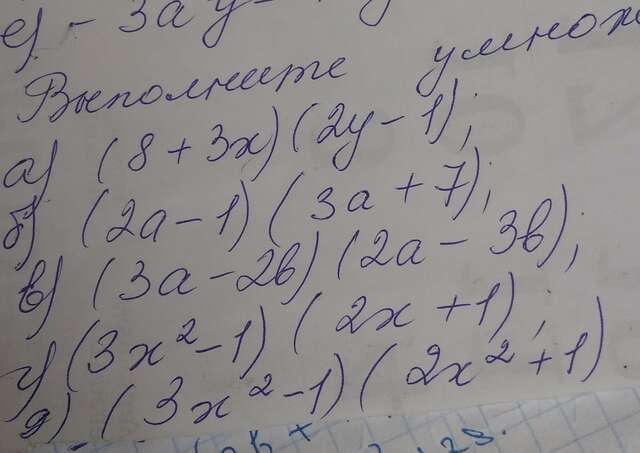 е) - 3а у -
Выполните умнож
а) (8 + 3x) (2y - 1);
б) (2а - 1) (3а + 7);
в) (3а - 2в) (2а - 3в);
г) (3x² - 1) (2x + 1);
д) (3x² - 1) (2x² + 1)